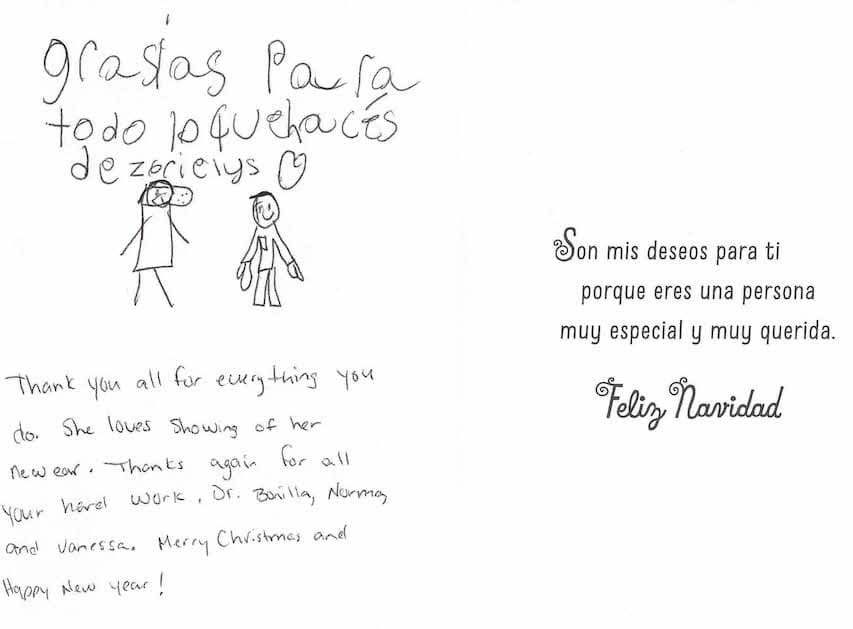 grasias Para
todo lo que hacés
de zorielys
Thank you all for everything you
do. She loves showing of her
new ear. Thanks again for all
your hard work, Dr. Bonilla, Norma,
and Vanessa. Merry Christmas and
Happy New year!
Son mis deseos para ti
porque eres una persona
muy especial y muy querida.
Feliz Navidad